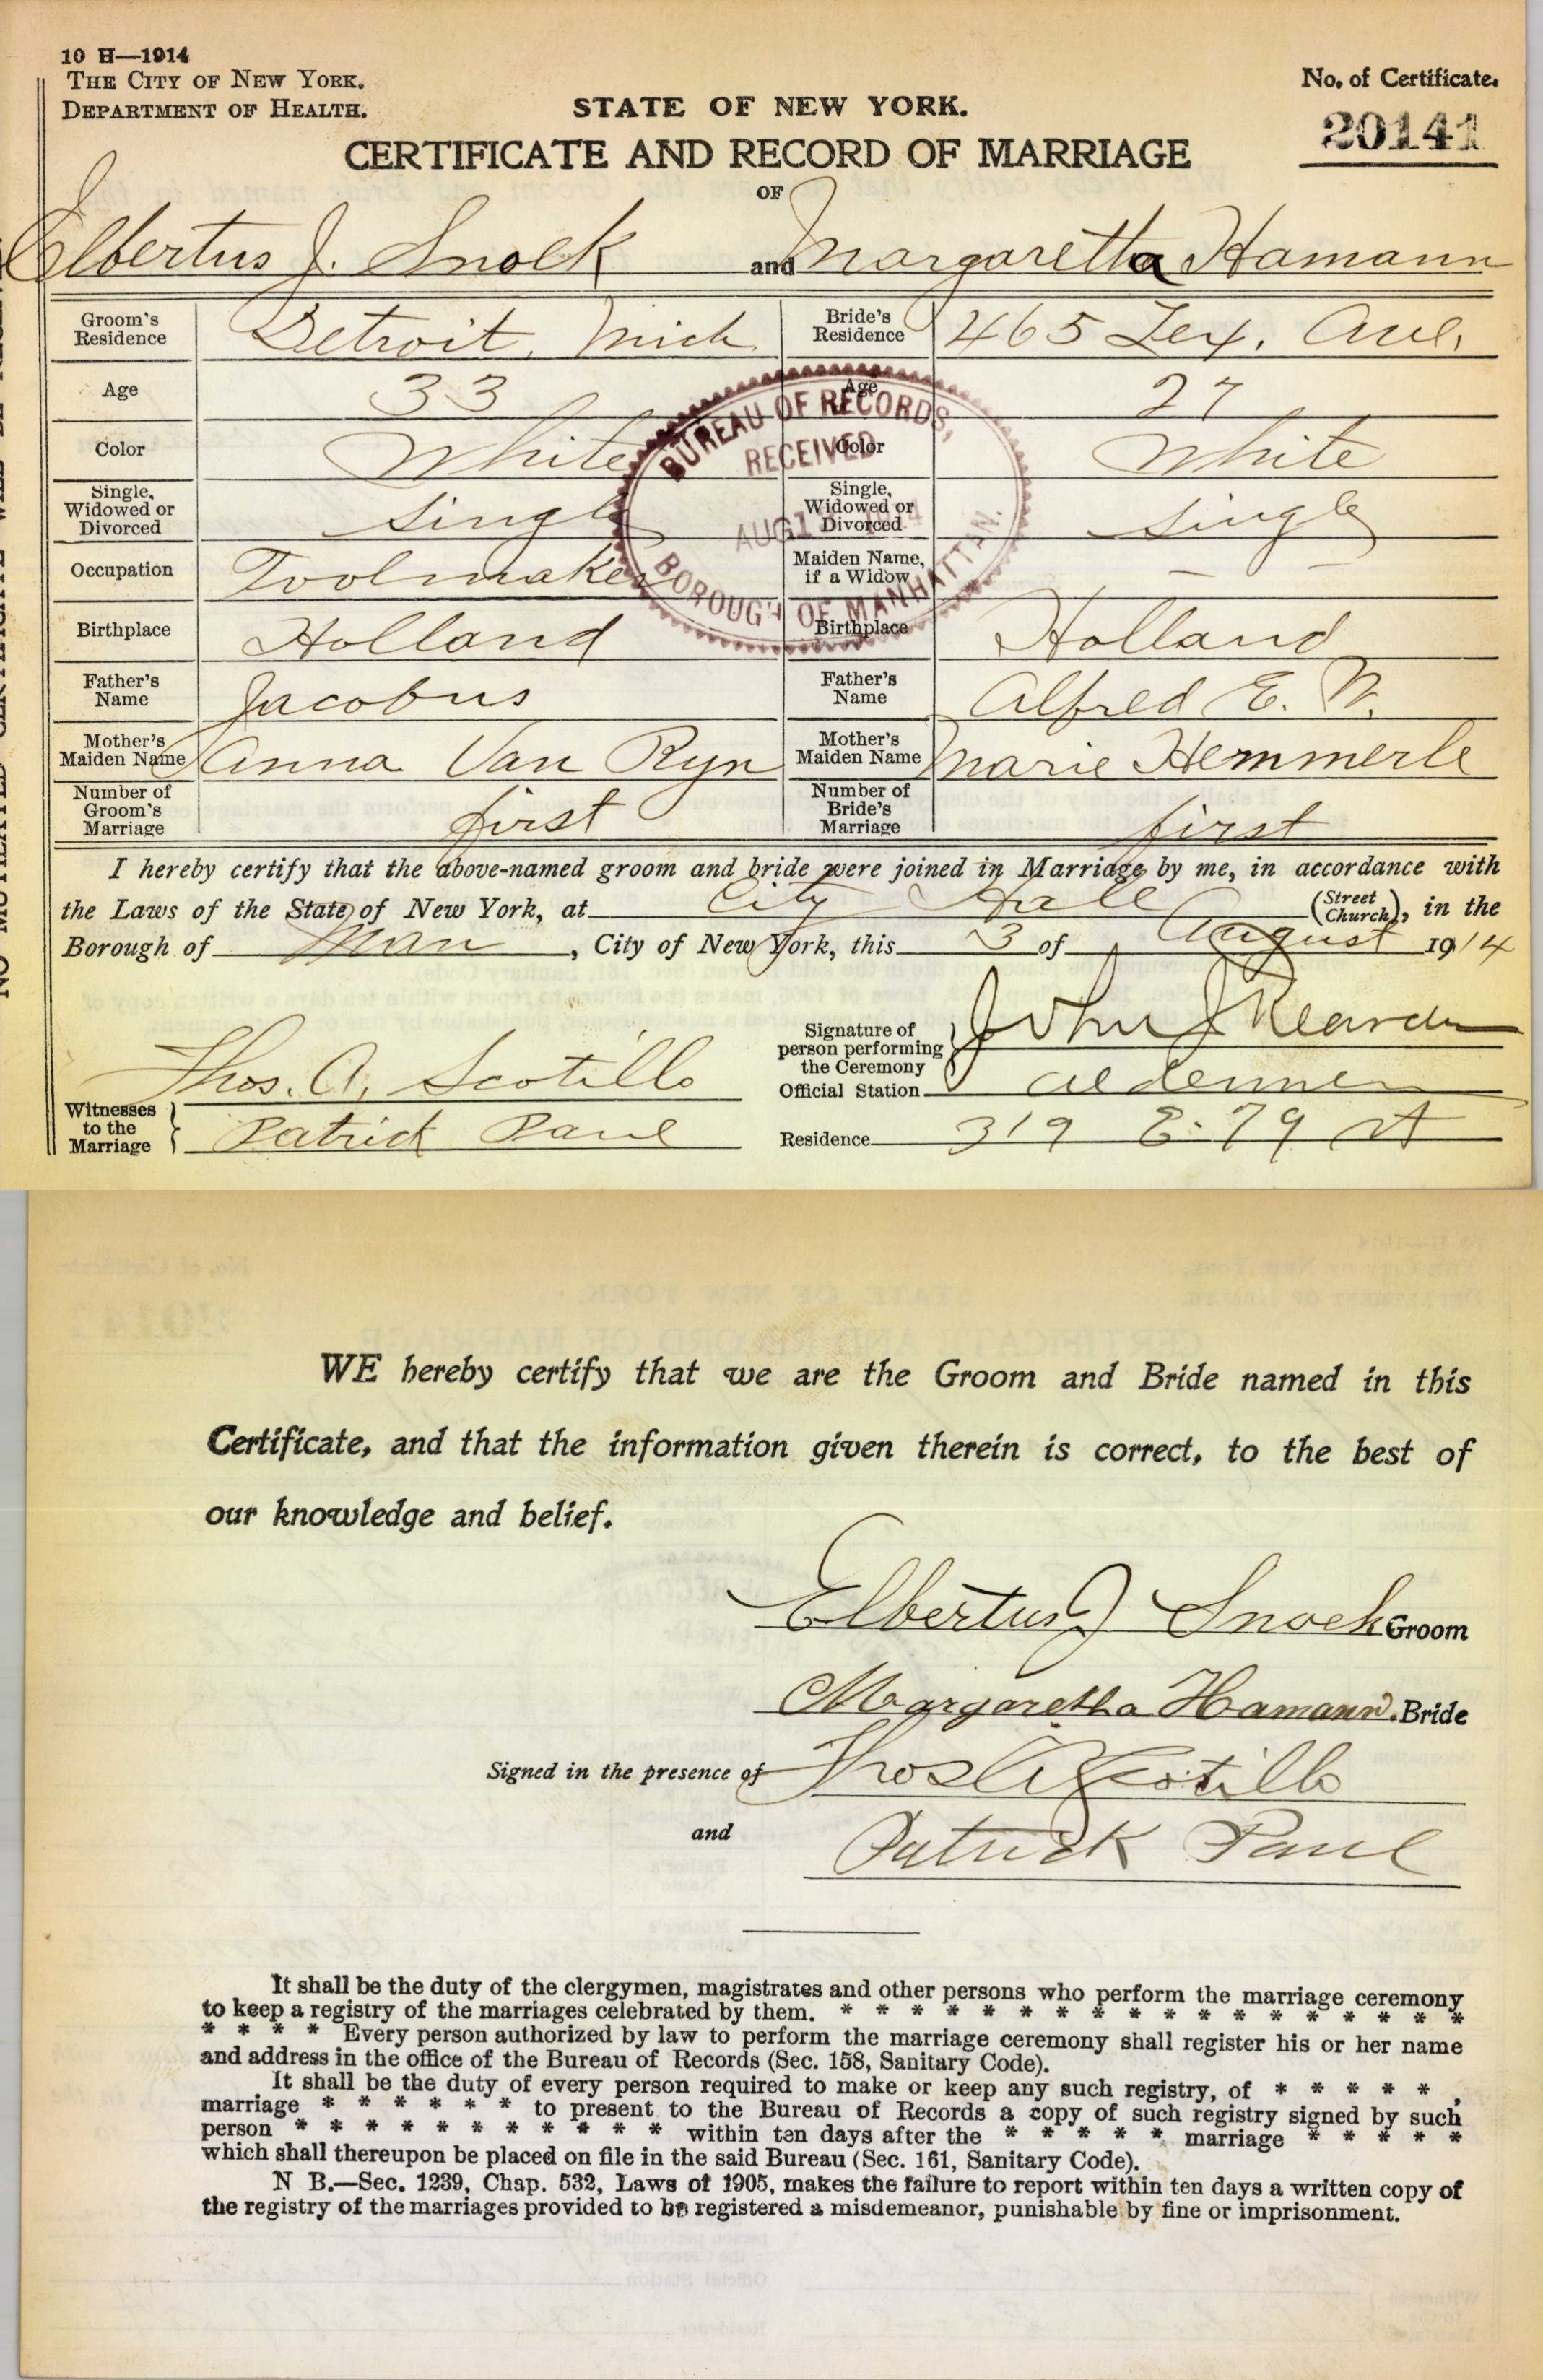 10 H—1914
THE CITY OF NEW YORK.
DEPARTMENT OF HEALTH.
STATE OF NEW YORK.
No. of Certificate.
20141
CERTIFICATE AND RECORD OF MARRIAGE
OF
Elbertus J. Snoek and Margaretta Hamann
Groom's Residence Detroit, Mich Bride's Residence 465 Lex. Ave.
Age 33 Age 27
Color White Color White
Single, Widowed or Divorced Single Single, Widowed or Divorced Single
Occupation Toolmaker Maiden Name, if a Widow — —
Birthplace Holland Birthplace Holland
Father's Name Jacobus Father's Name Alfred E. W.
Mother's Maiden Name Anna Van Ryn Mother's Maiden Name Marie Hemmerle
Number of Groom's Marriage first Number of Bride's Marriage first
BUREAU OF RECORDS,
RECEIVED
AUG
BOROUGH OF MANHATTAN.
I hereby certify that the above-named groom and bride were joined in Marriage by me, in accordance with
the Laws of the State of New York, at City Hall (Street Church), in the
Borough of Man, City of New York, this 3 of August 1914
Signature of person performing the Ceremony John J Reardon
Thos. A. Scotillo
Official Station Alderman
Witnesses to the Marriage } Patrick Paul
Residence 319 E. 79 St
WE hereby certify that we are the Groom and Bride named in this
Certificate, and that the information given therein is correct, to the best of
our knowledge and belief.
Elbertus J Snoek Groom
Margaretha Hamann. Bride
Signed in the presence of Thos A Scotillo
and Patrick Paul
It shall be the duty of the clergymen, magistrates and other persons who perform the marriage ceremony
to keep a registry of the marriages celebrated by them. * * * * * * * * * * * * * * * * * *
* * * * Every person authorized by law to perform the marriage ceremony shall register his or her name
and address in the office of the Bureau of Records (Sec. 158, Sanitary Code).
It shall be the duty of every person required to make or keep any such registry, of * * * * * ,
marriage * * * * * * to present to the Bureau of Records a copy of such registry signed by such
person * * * * * * * * * * * within ten days after the * * * * * marriage * * * * *
which shall thereupon be placed on file in the said Bureau (Sec. 161, Sanitary Code).
N B.—Sec. 1239, Chap. 532, Laws of 1905, makes the failure to report within ten days a written copy of
the registry of the marriages provided to be registered a misdemeanor, punishable by fine or imprisonment.